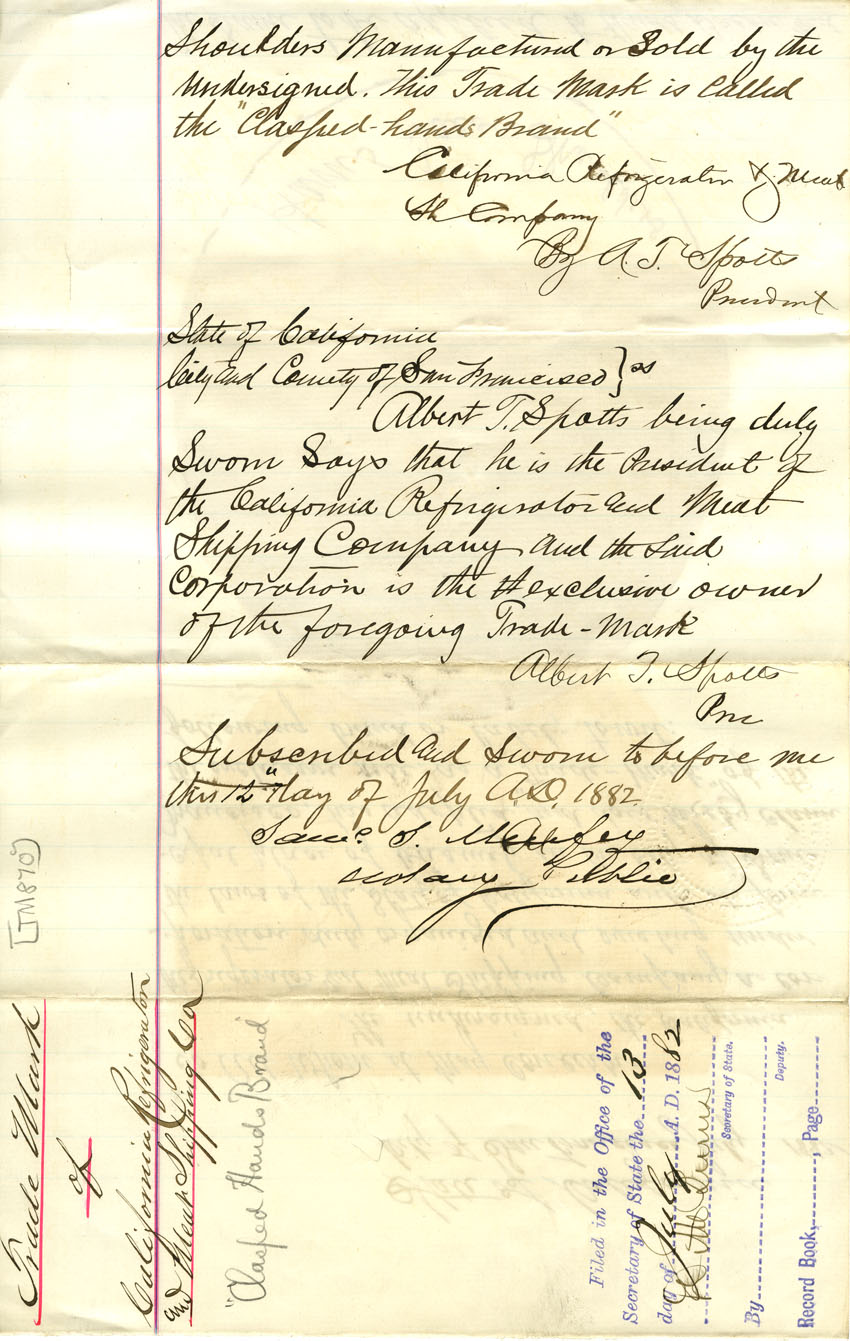 Shoulders Manufactured or Sold by the
Undersigned. This Trade Mark is Called
the "Clasped-hands Brand"
California Refrigerator & Meat
Sh Company
By A. T. Spotts
President
State of California
City and County of San Francisco } ss
Albert T. Spotts being duly
Sworn Says that he is the President of
the California Refrigerator and Meat
Shipping Company and the Said
Corporation is the exclusive owner
of the foregoing Trade-Mark
Albert T. Spotts
Pres
Subscribed and Sworn to before me
this 12" day of July A.D. 1882
Saml. S.
Notary Public
[TM870]
Trade Mark
of
California Refrigerator
and Meat Shipping Co
"Clasped Hands Brand"
Filed in the Office of the
Secretary of State the 13
day of July A. D. 1882
Secretary of State.
By Deputy.
Record Book, , Page